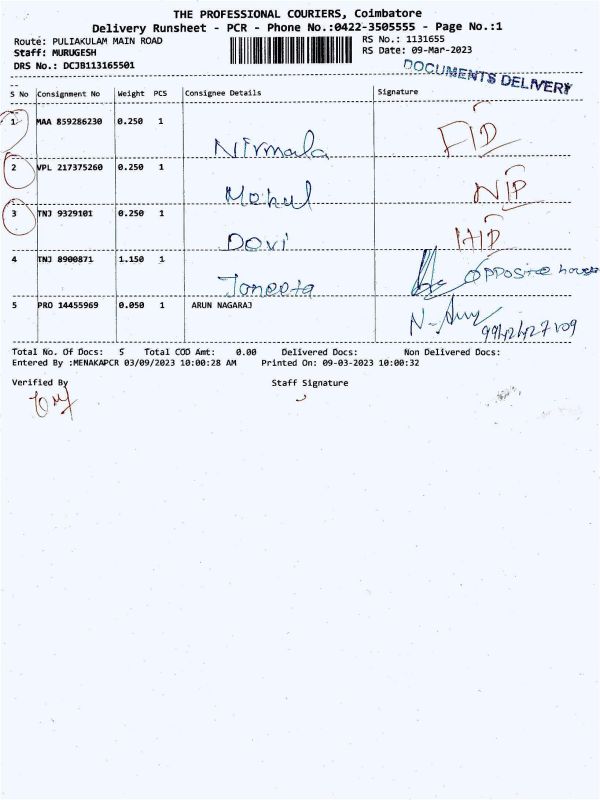 THE PROFESSIONAL COURIERS, Coimbatore
Delivery Runsheet - PCR - Phone No.:0422-3505555 - Page No.:1
Route: PULIAKULAM MAIN ROAD
Staff: MURUGESH
DRS No.: DCJB113165501
RS No.: 1131655
RS Date: 09-Mar-2023
DOCUMENTS DELIVERY
S No Consignment No Weight PCS Consignee Details Signature
1 MAA 859286230 0.250 1
Nirmala
2 VPL 217375260 0.250 1
Mohul NIP
3 TNJ 9329101 0.250 1
Dovi
4 TNJ 8900871 1.150 1
opposite house
5 PRO 14455969 0.050 1 ARUN NAGARAJ
Total No. Of Docs: 5 Total COD Amt: 0.00 Delivered Docs: Non Delivered Docs:
Entered By :MENAKAPCR 03/09/2023 10:00:28 AM Printed On: 09-03-2023 10:00:32
Verified By Staff Signature